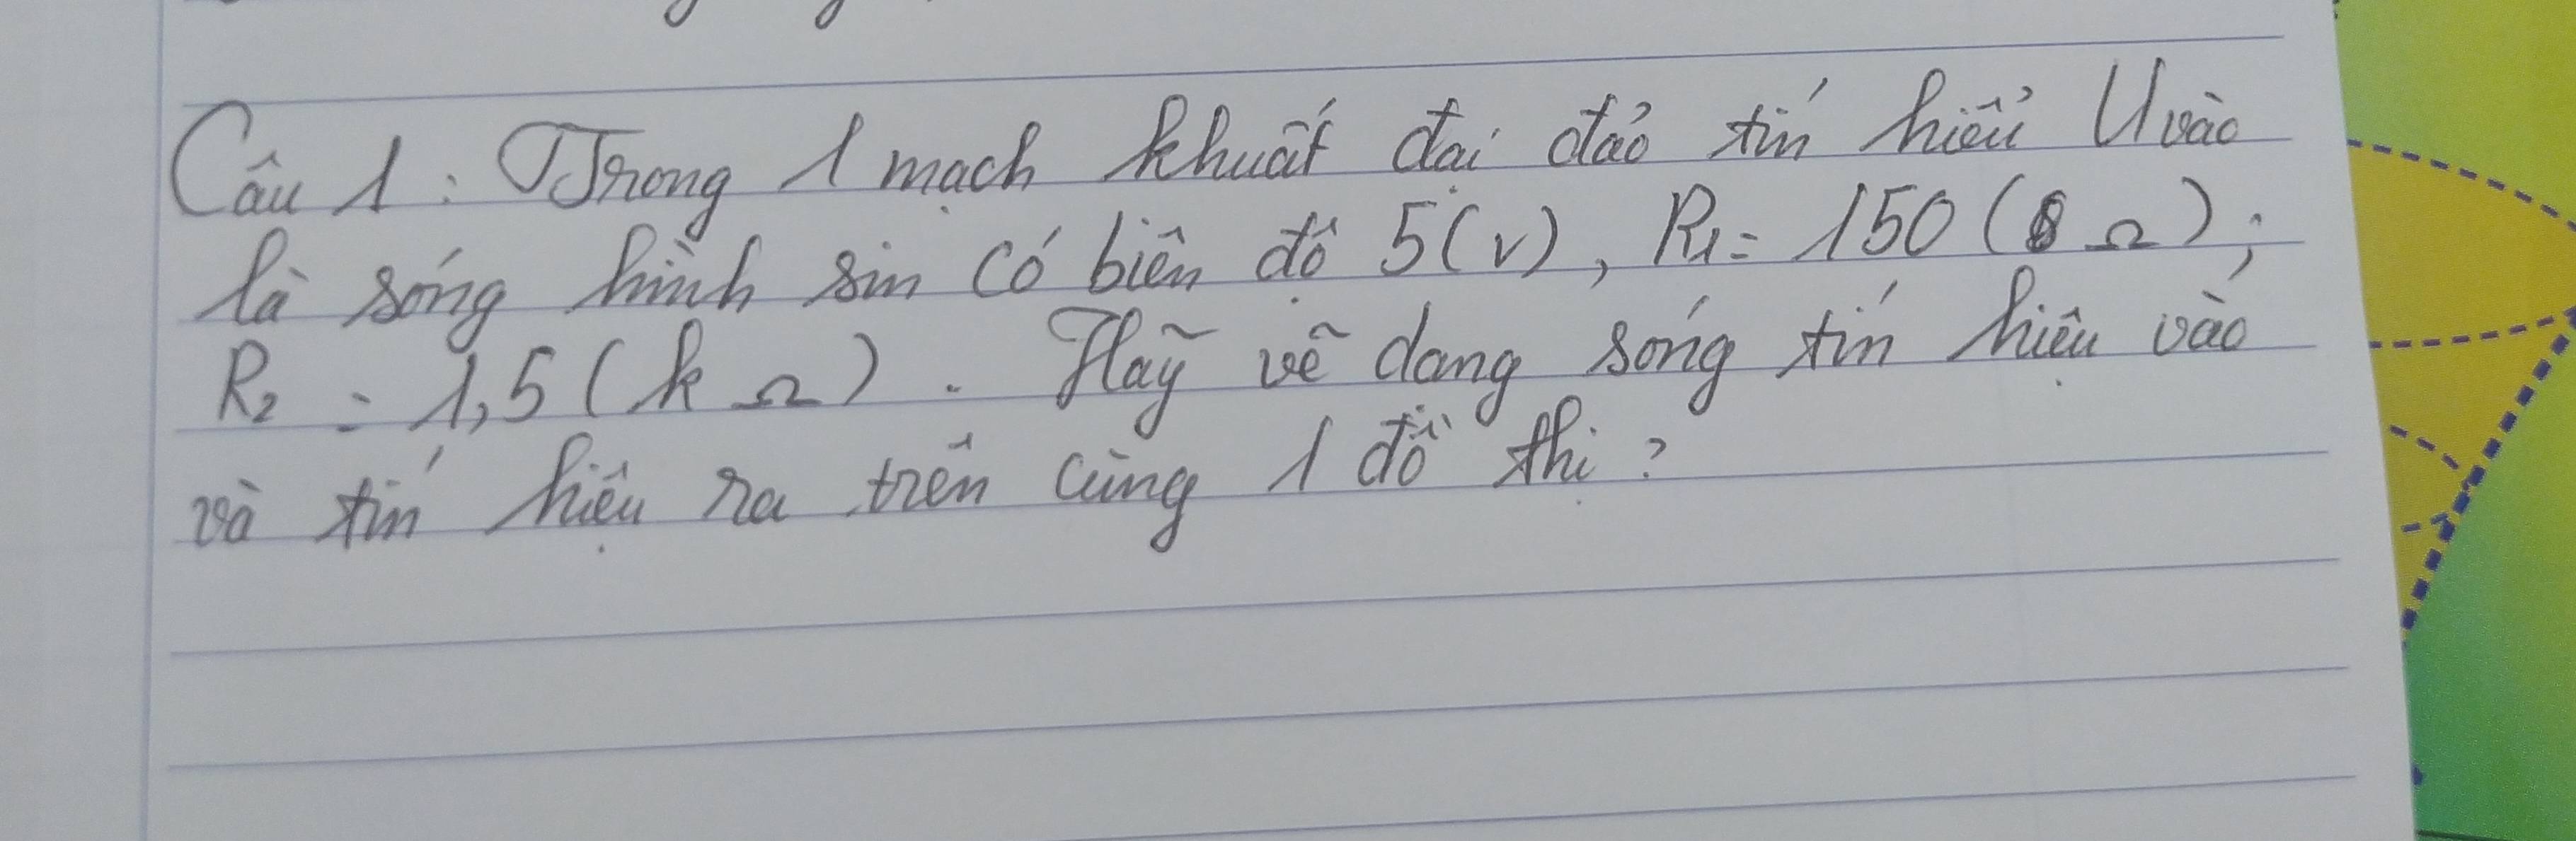 Câu 1 : Trong 1 mạch khuất đại đảo tín hiểu Uvào
là sóng hình sin có biên độ 5(v), R1 = 150 ( Ω ) ;
R2 = 1,5 ( k Ω ) . Hãy vẽ dạng sóng tín hiệu vào
và tín hiệu ra trên cùng 1 đồ thị ?